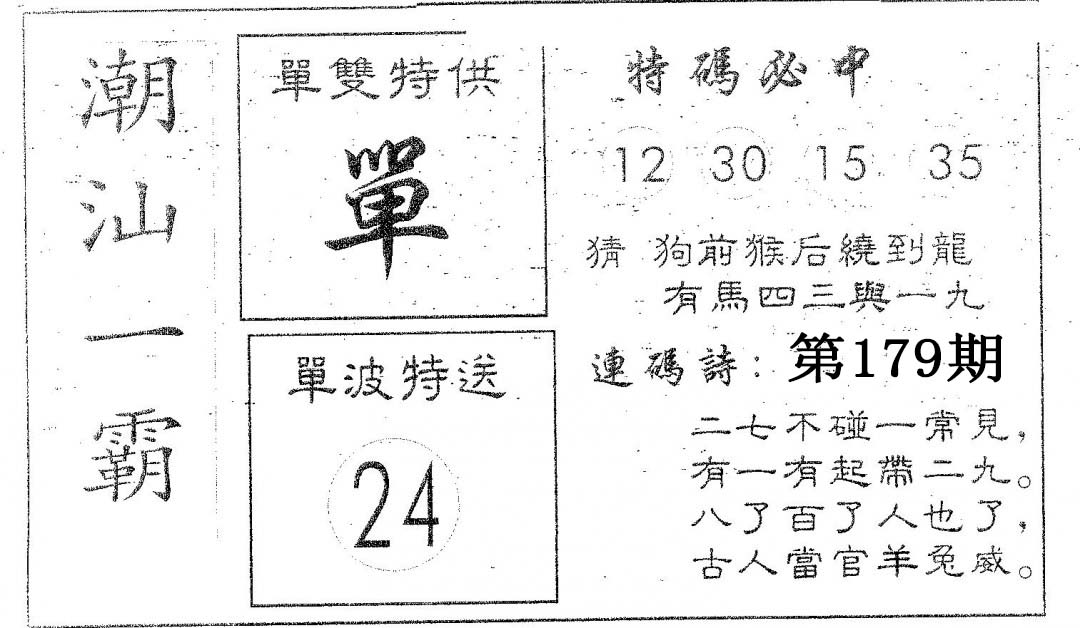 潮汕一霸
單雙特供
單
單波特送
24
特碼必中
12 30 15 35
猜 狗前猴后繞到龍
有馬四三與一九
連碼詩：第179期
二七不碰一常見，
有一有起帶二九。
八了百了人也了，
古人當官羊兔威。